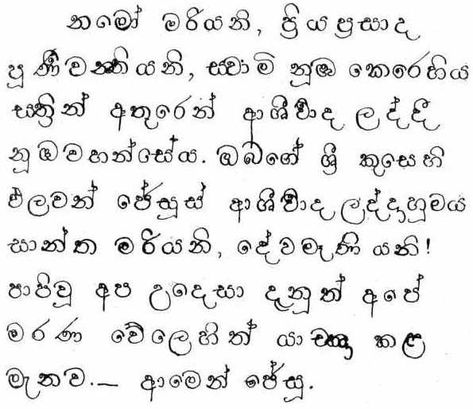 නමෝ මරියනි, ප්‍රිය ප්‍රසාද
පූර්ණවත්තියනි, ස්වාමි නූඹ කෙරෙහිය
සත්‍රීන් අතුරෙන් ආශීර්වාද ලද්දී
නූඹවහන්සේය. ඔබගේ ශ්‍රී කුසෙහි
ඵලවන් ජේසූස් ආශීර්වාද ලද්දාහුමය
සාන්ත මරියනි, දේවමෑණියනි!
පාපිවූ අප උදෙසා දැනූත් අපේ
මරණ වේලෙහිත් යාච්ඤා කළ
මැනව.— ආමෙන් ජේසූ.